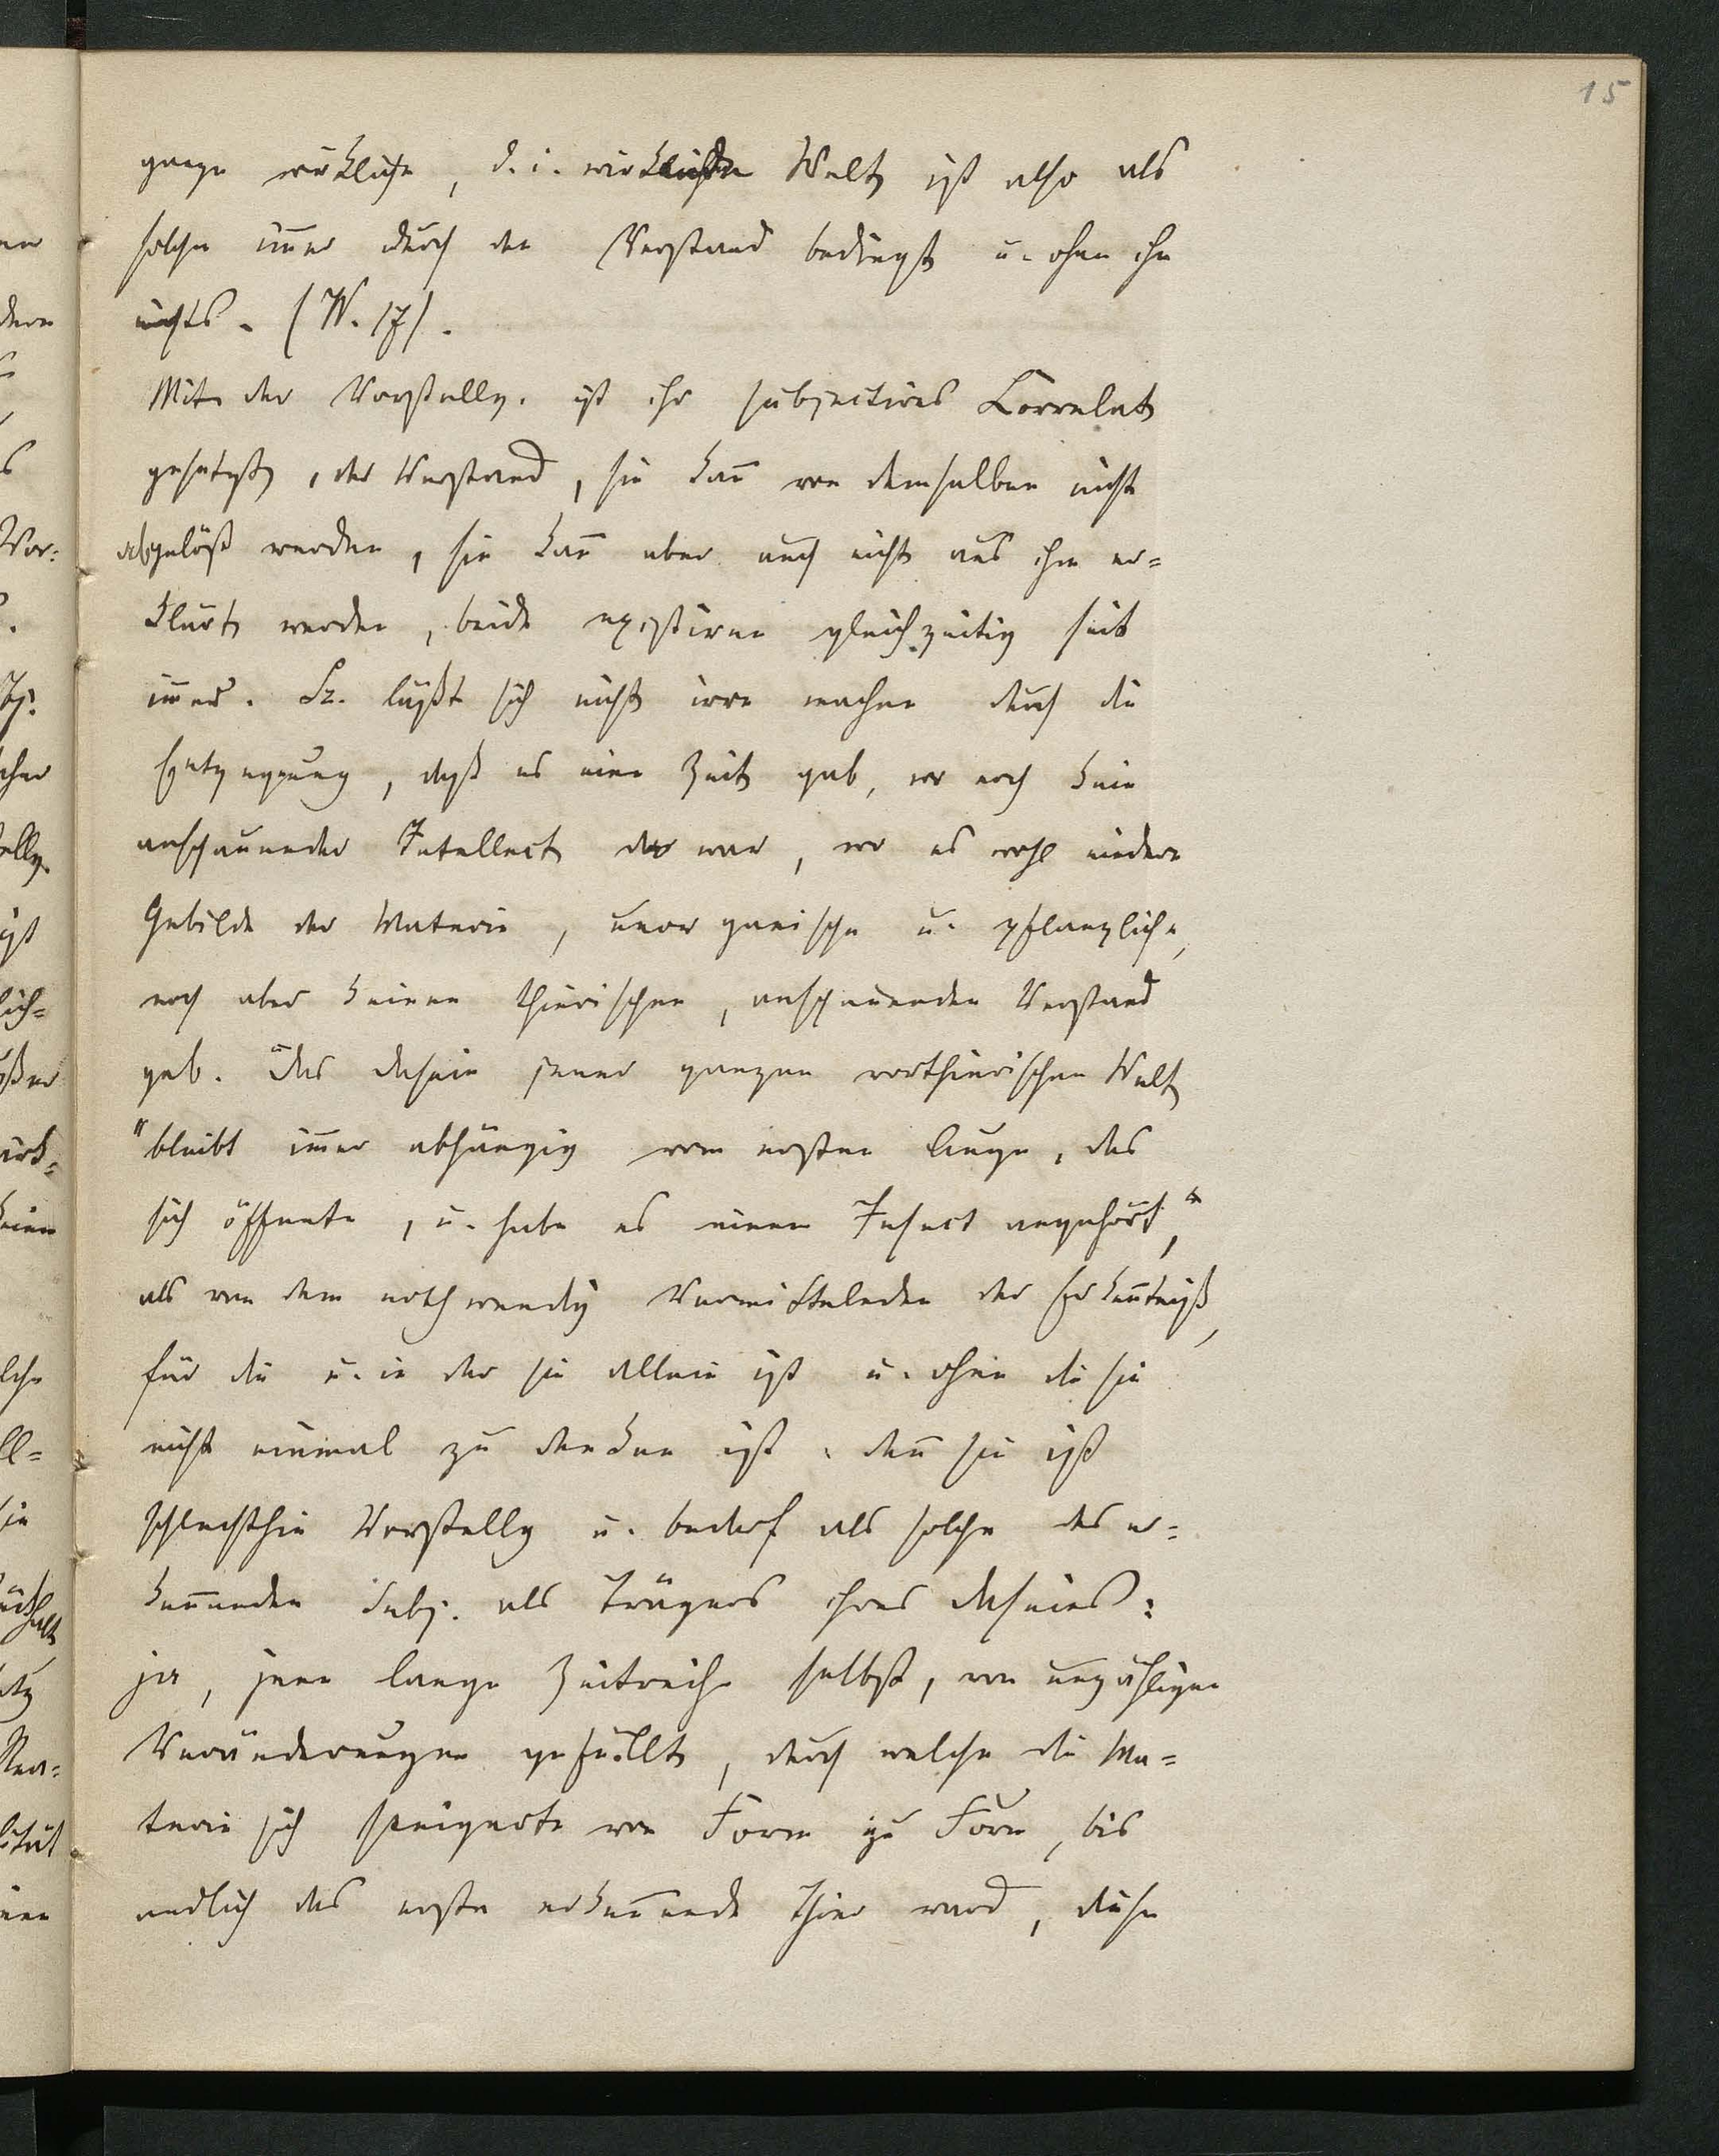 15
ganze wirkliche, d. i. wirkende Welt ist also als
solche im̄er durch den Verstand bedingt u. ohne ihn
nichts. (W. 17).
Mit der Vorstellg. ist ihr subjectives Correlat
gesetzt, der Verstand, sie kan̄ von demselben nicht
abgelöst werden, sie kan̄ aber auch nicht aus ihm er=
klärt werden, beide existiren gleichzeitig seit
im̄er. Sch. läßt sich nicht irre machen durch die
Entgegnung, daß es eine Zeit gab, wo noch kein
anschauender Intellect da war, wo es wohl niedere
Gebilde der Materie, unorganische u. pflanzliche,
noch aber keinen thierischen, anschauenden Verstand
gab. "Das Dasein jener ganzen vorthierischen Welt
"bleibt im̄er abhängig vom ersten Auge, das
sich öffnete, u. habe es einem Insect angehört,"
als von dem nothwendig Vermittelnden der Erken̄tniß,
für die u. in der sie allein ist u. ohne die sie
nicht einmal zu denken ist: den̄ sie ist
schlechthin Vorstellg u. bedarf als solche des er=
ken̄enden Subj. als Trägers ihres Daseins:
ja, jene lange Zeitreihe selbst, von unzähligen
Veränderungen gefüllt, durch welche die Ma=
terie sich steigerte von Form zu Form, bis
endlich das erste erken̄ende Thier ward, diese